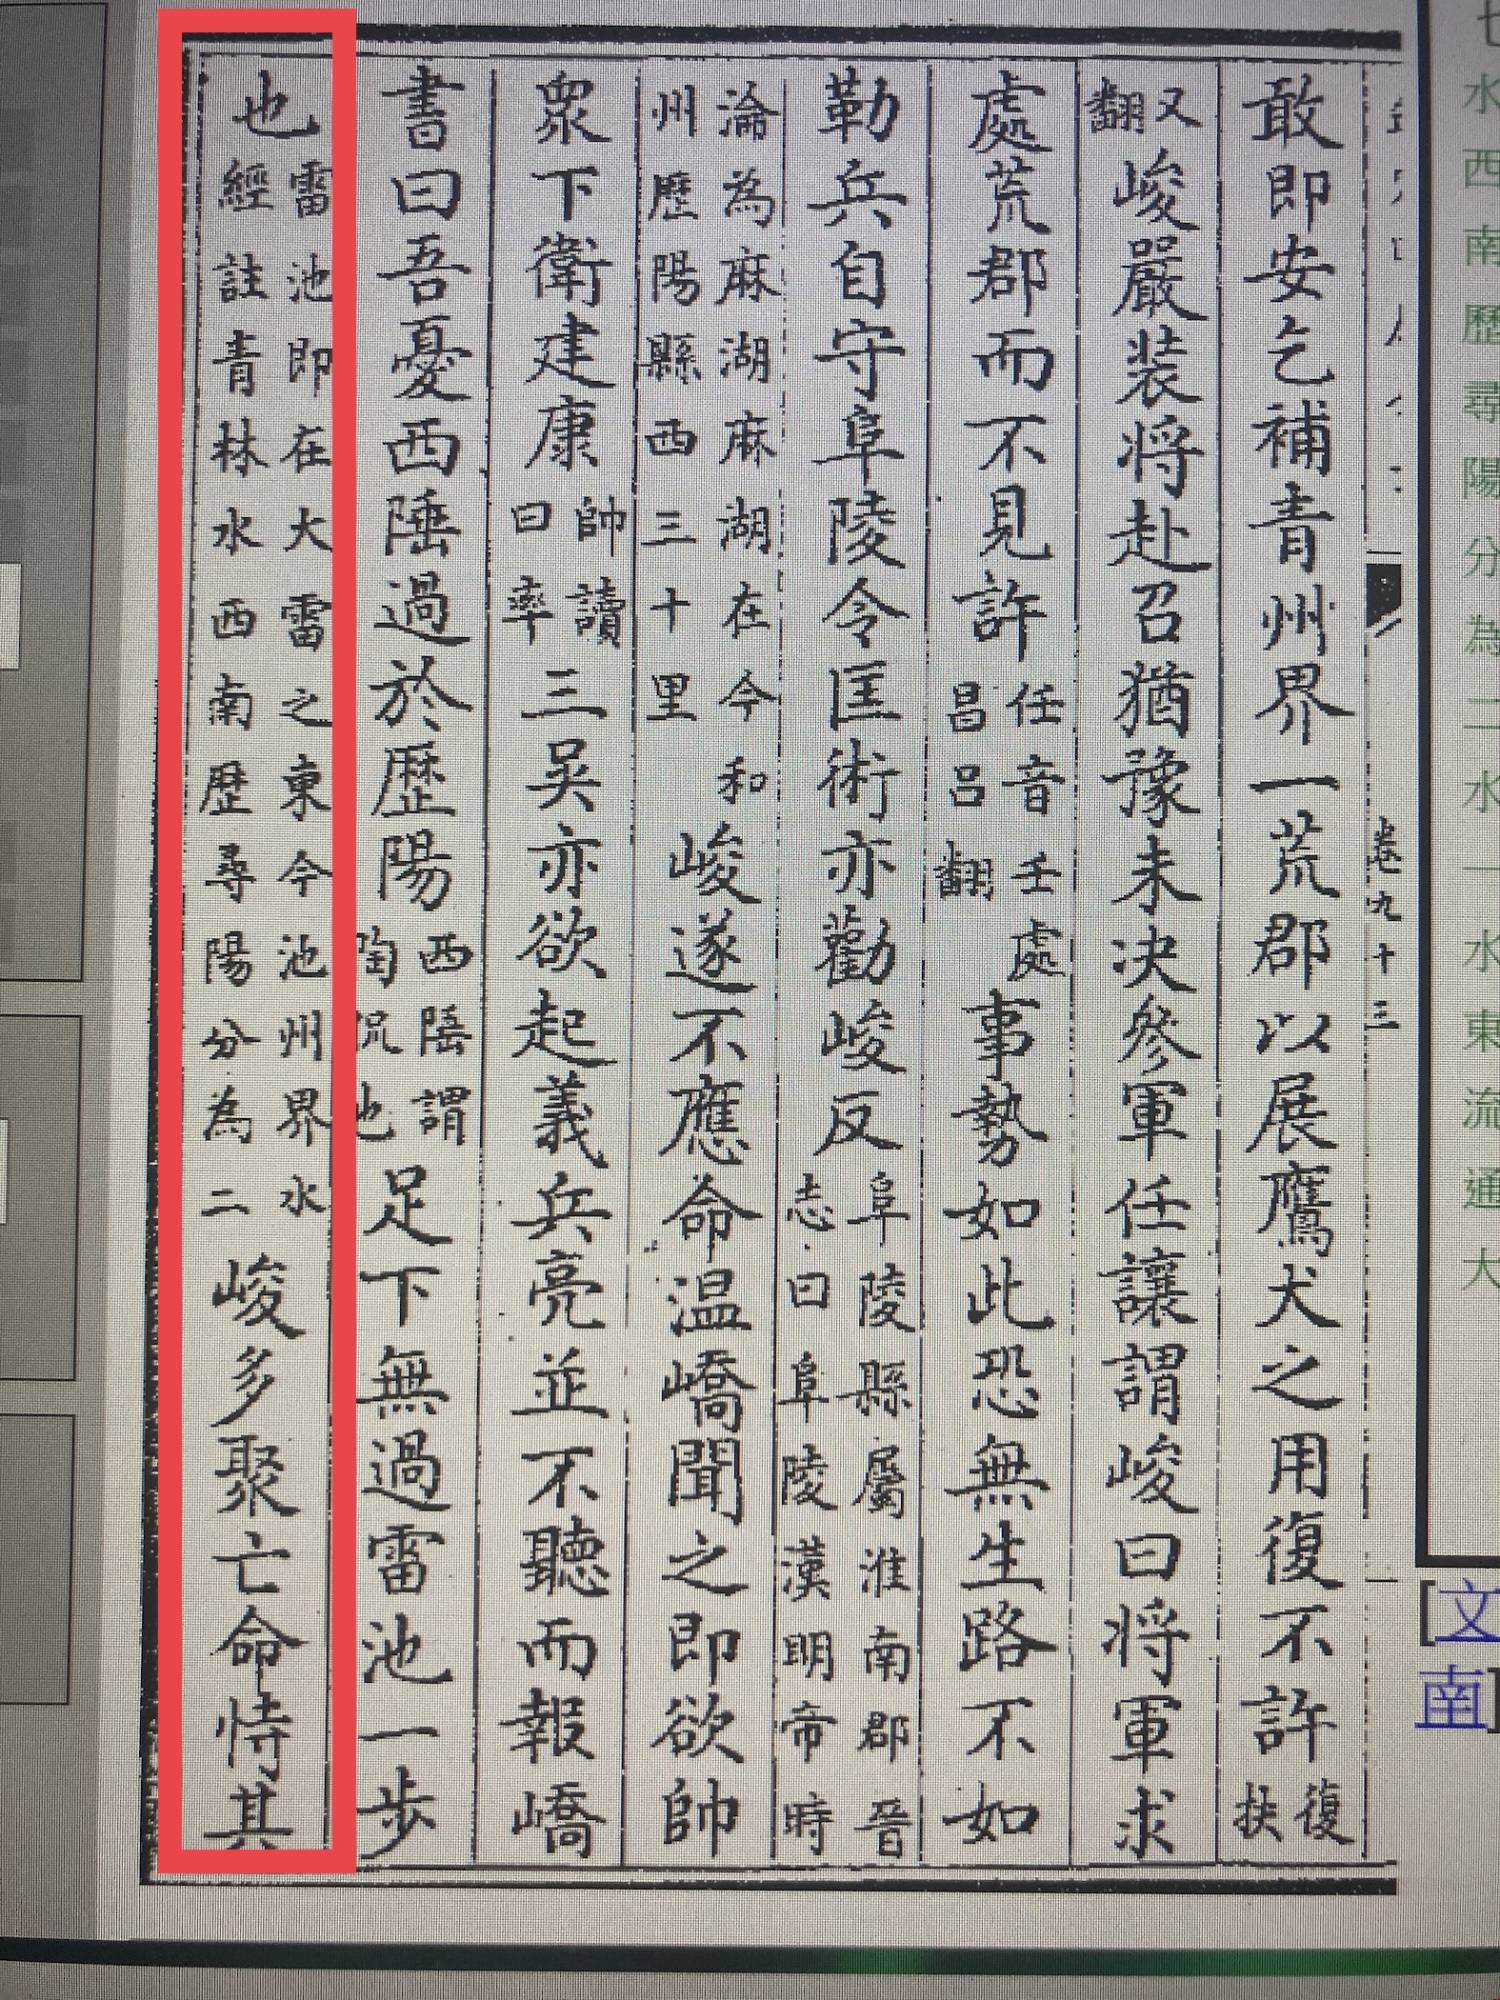 水西南歷尋陽分為二水一水東流通大
[文
南]
卷九十三
敢即安乞補青州界一荒郡以展鷹犬之用復不許復扶
又翻峻嚴裝將赴召猶豫未決參軍任讓謂峻曰將軍求
處荒郡而不見許任音壬處昌呂翻事勢如此恐無生路不如
勒兵自守阜陵令匡術亦勸峻反阜陵縣屬淮南郡晉志曰阜陵漢明帝時
淪為麻湖麻湖在今和州歷陽縣西三十里峻遂不應命温嶠聞之即欲帥
衆下衛建康帥讀曰率三吳亦欲起義兵亮並不聽而報嶠
書曰吾憂西陲過於歷陽西陲謂陶侃也足下無過雷池一步
也雷池即在大雷之東今池州界水經註青林水西南歷尋陽分為二峻多聚亡命恃其